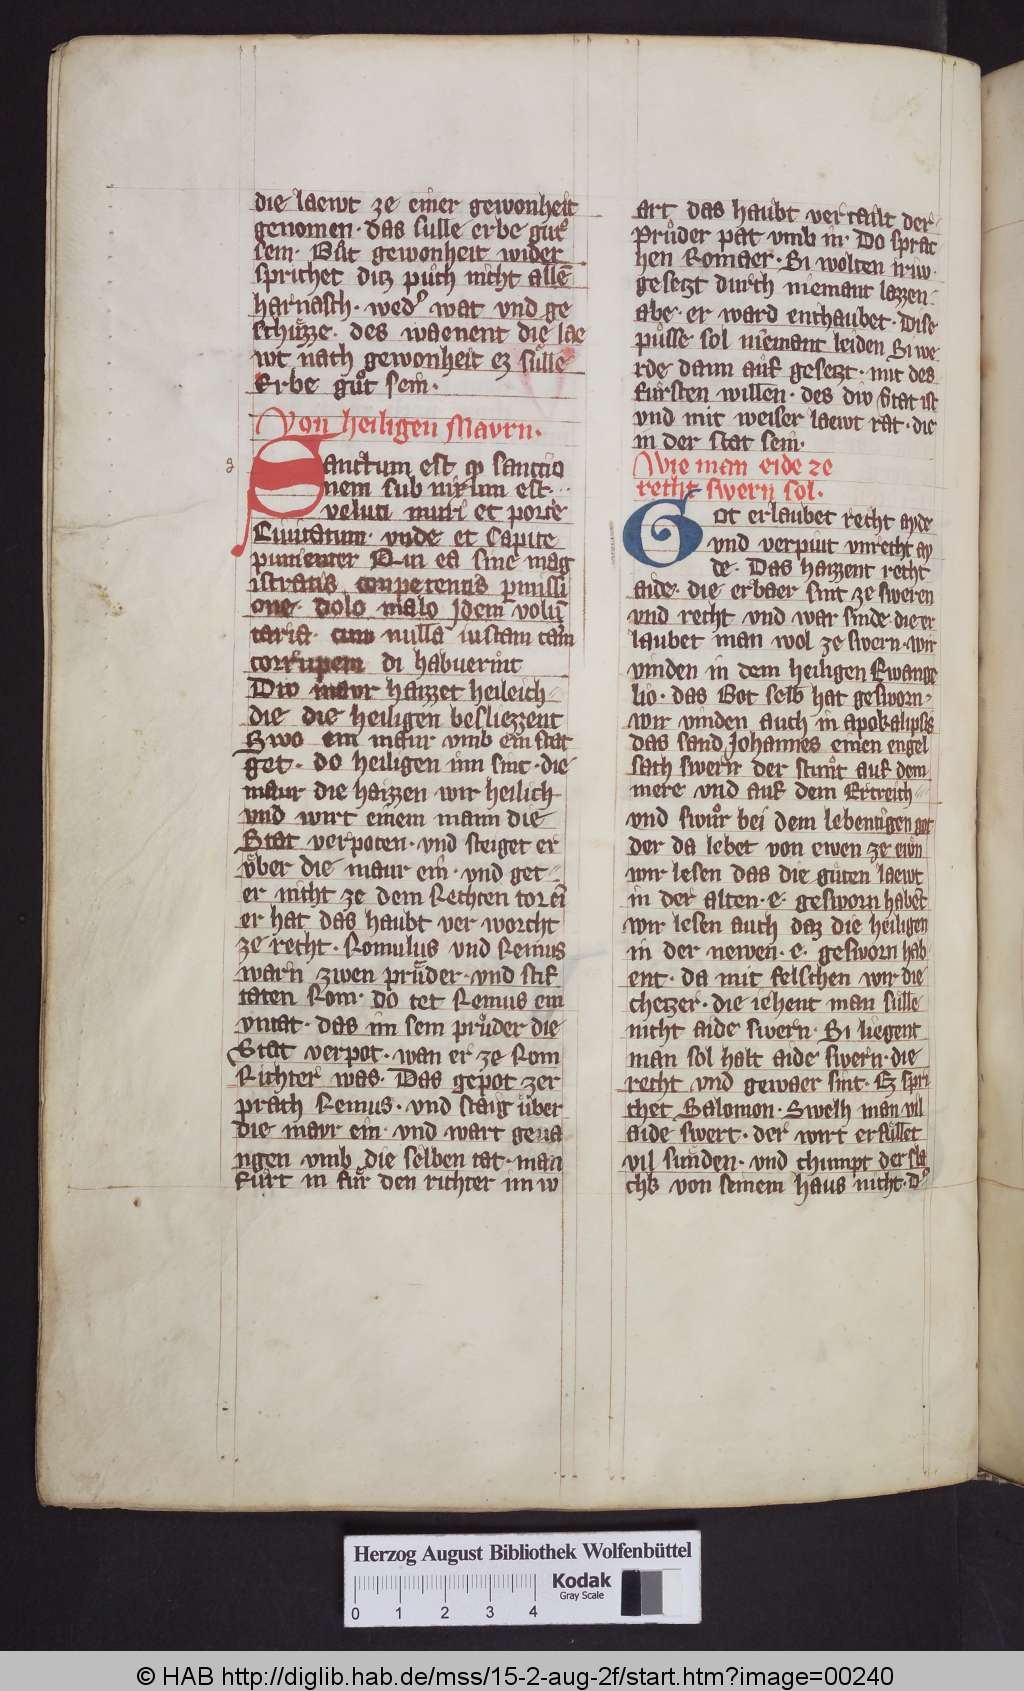 die laewt ze einer gewonheit
genomen · das sulle erbe guͦt
sein · Guͦt gewonheit wider
sprichet ditz puͦch nicht allē
harnasch · wed᷑ wat vnd ge
schuͤzze · des waenent die lae
wt nach gewonheit ez suͤlle
Erbe guͦt sein ·
Von heiligen Mavrn ·
Sanctum est qͥ sanctio
nem sub nixum est ·
veluti muri et porte
Ciuitatum · vnde et Capite
puniuntur Qui ea sine mag
istratus conpetentis pmissi
one · dolo malo jdem volū
taria · cum nulla iustam cām
corrupem di habuerint
Div maur haizzet heileich
die die heiligen besliezzent
Swo ein maur vmb ein stat
get · do heiligen inn sint · die
maur die haizzen wir heilich
vnd wirt einem mann die
Stat verpoten · vnd steiget er
vͤber die maur ein · vnd get
er nicht ze dem Rechten tor ein
er hat das haubt ver worcht
ze recht · Romulus vnd Remus
warn zwen pruͤder · vnd stif
taten Rom · do tet Remus ein
vntat · das im sein pruͦder die
Stat verpot · wan er ze Rom
Richter was · Das gepot zer
prach Remus · vnd staig vͤber
die maur ein · vnd wart geua
ngen vmb die selben tat · man
fuͤrt in fuͤr den richter im w
art das haubt vertailt der
Pruͦder pat vmb in · Do sprac
hen Romaer · Si wolten ir iw
gesetzt durch niemant lazzen
abe · er ward enthaubet · Dise
puͦsse sol niemant leiden Si we
rde dann auf gesetzt · mit des
fuͤrsten willen · des div Stat ist
vnd mit weiser laewt rat · die
in der stat sein ·
Wie man eide ze
recht swern sol ·
Got erlaubet recht ayde
vnd verpiut vnrecht ay
de · Das haizzent recht
aide · die erbaer sint ze sweren
vnd recht vnd war sinde · die er
laubet man wol ze swern · wir
vinden in dem heiligen Ewange
lio · das Got selb hat gesworn ·
wir vinden auch in apokalipsis
das sand Johannes einen engel
sach swern der stuͦnt auf dem
mere vnd auf dem Ertreich
vnd swuͦr bei dem lebentigen got
der da lebet von ewen ze ewn
wir lesen das die guͦten laewt
in der alten · e · gesworn habēt
wir lesen auch daz die heiligen
in der newen · e · gesworn hab
ent · da mit felschen wir die
chetzer · die iehent man suͤlle
nicht aide swern · Si liegent
man sol halt aide swern · die
recht vnd gewaer sint · Ez spri
chet Salomon · Swelh man vil
aide swert · der wirt erfuͤllet
vil suͤnden · vnd chumpt der sla
chk von seinem haus nicht · D᷑
Herzog August Bibliothek Wolfenbüttel
0 1 2 3 4
Kodak
Gray Scale
© HAB http://diglib.hab.de/mss/15-2-aug-2f/start.htm?image=00240